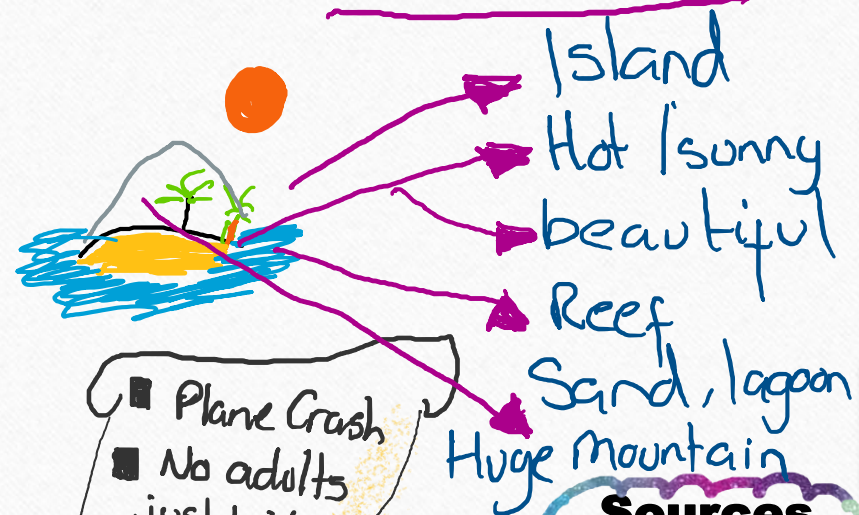 Island
Hot / sunny
beautiful
Reef
Sand, lagoon
Huge mountain
Plane Crash
No adults
Sources